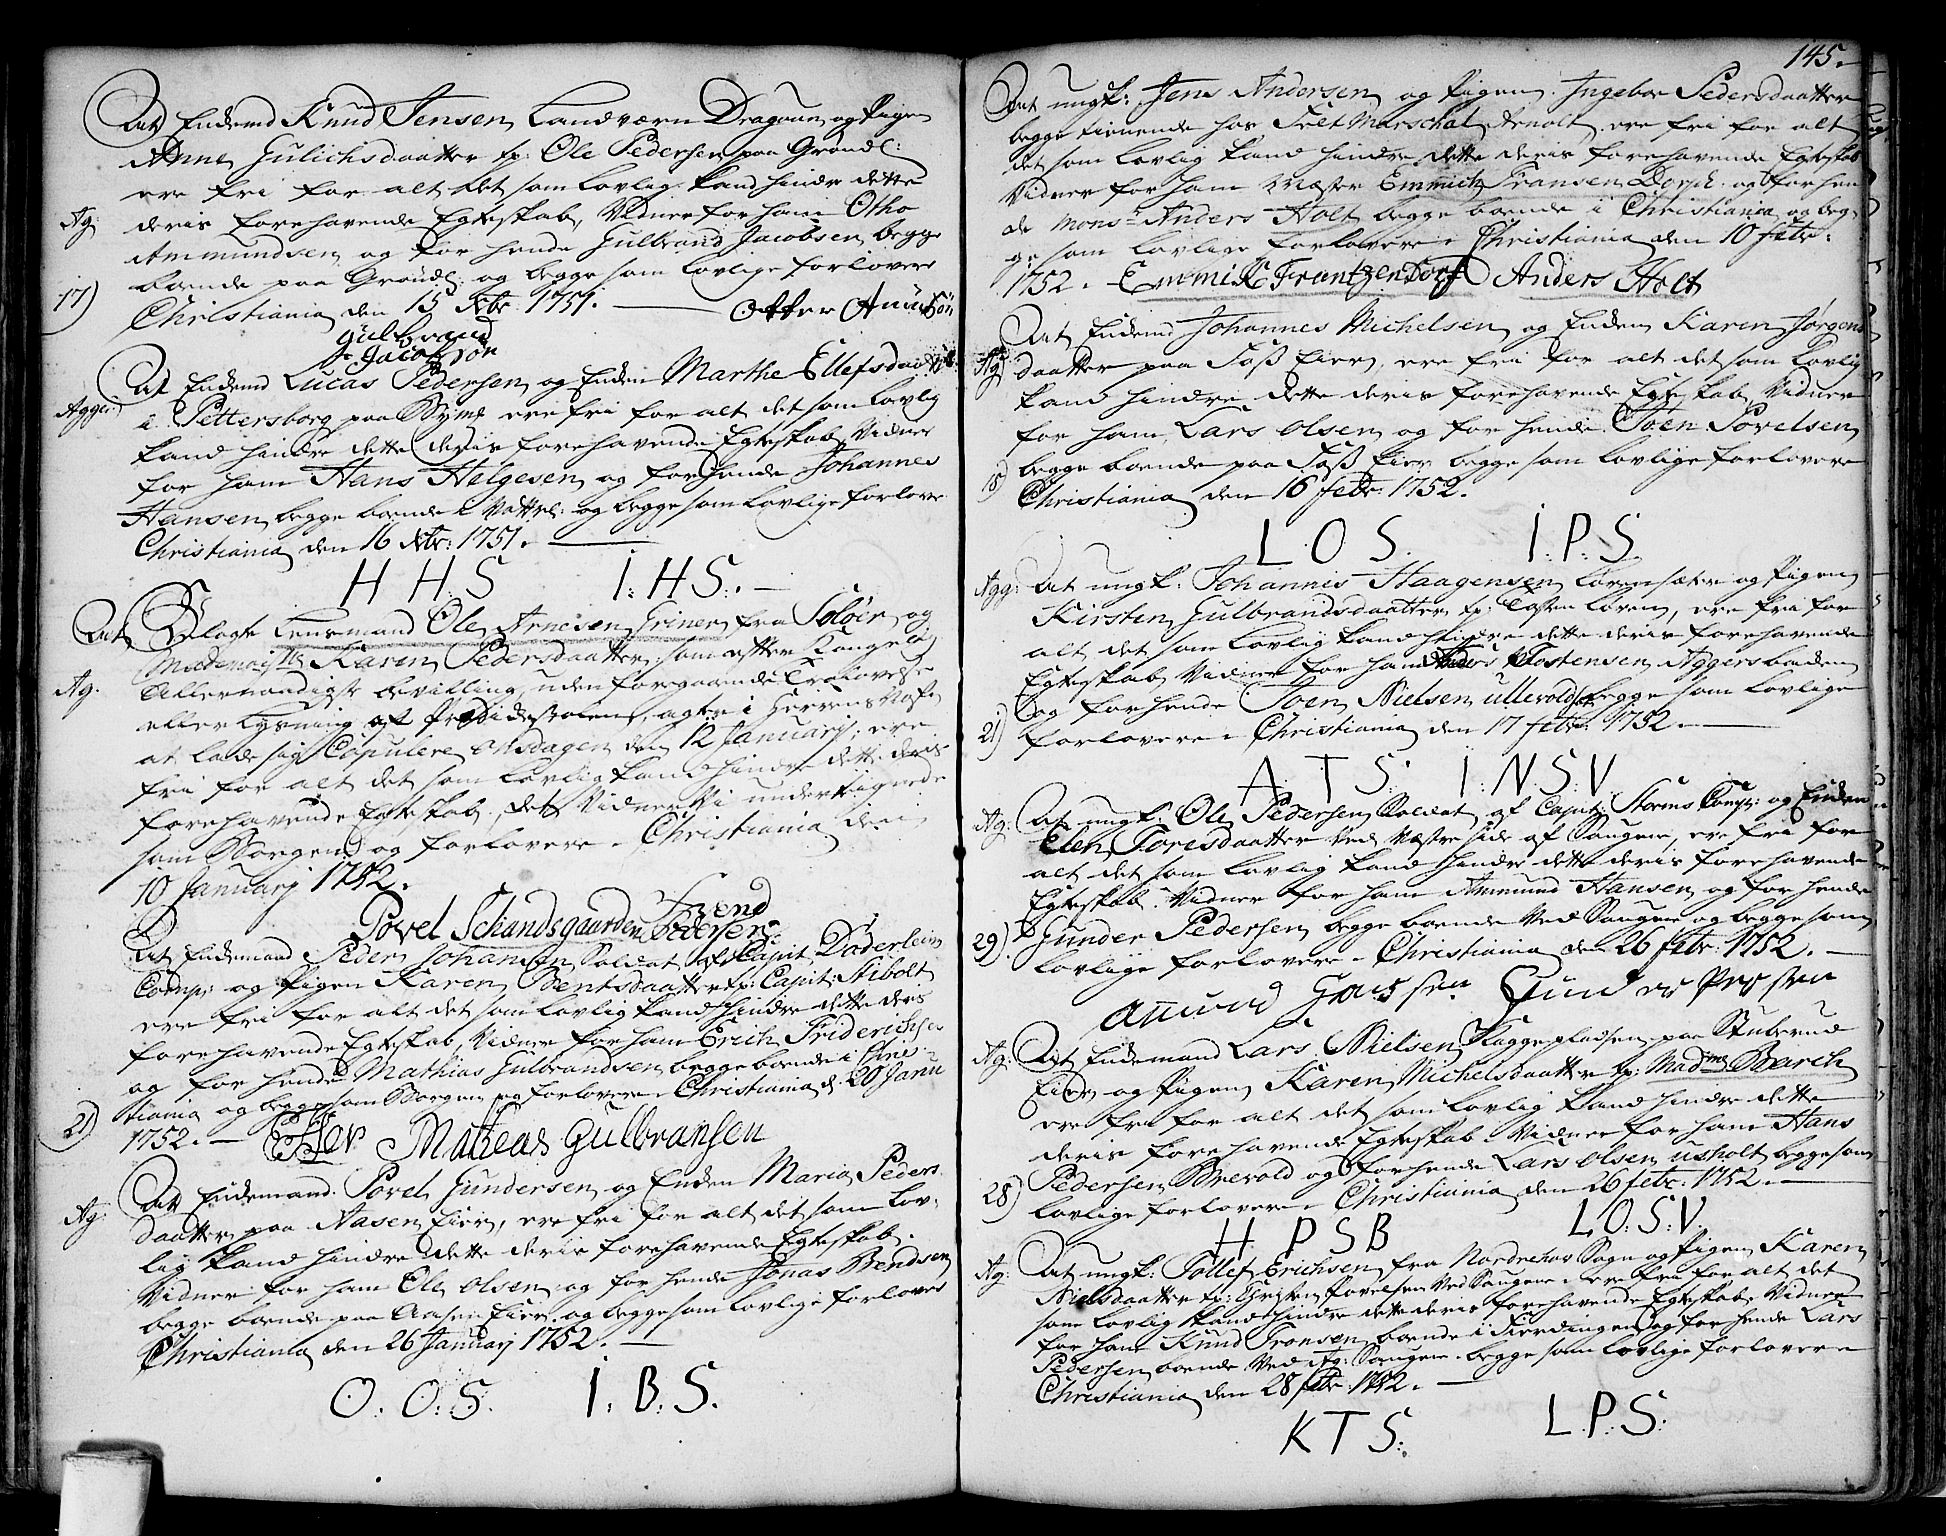 At Enkemd Knud Jensen, Landværn Dragoun, og Pigen
Anne Gulichsdaatter tp: Ole Pedersen paa Grønl:
ere fri for alt det som lovlig kand hindre dette
Ag: deris forehavende Egteskab, Vidner for ham Otho
Ammundsen, og for hende Gulbrand Jacobsen, begge
boende paa Grønl: og begge som lovlige forlovere
17) Christiania den 15 xbr: 1751.
Otter Amundsøn
gulbrand
Jacobsøn
At Enkemd Lucas Pedersen, og Enken Marthe Ellefsdaatter
Agger: i Pettersborg paa Bÿmt ere fri for alt det som lovlig
kand hindre dette deris forehavende Egteskab, Vidner
for ham Hans Helgesen, og for hende Johannes
Hansen, begge boende i Vattrl: og begge som lovlige forlovere
Christiania den 16 xbr: 1751.
H H S I: H S:
At Velagte Lensmand Ole Arnesen Griner fra Soløir, og
Mademoiselle Karen Pedersdaatter, som efter Kongelig
Ag. Allernaadigste bevilling, uden foregaaende Trolovelse
eller Lysning af Prædickestolen, agter i Herrens Nafn
at lade sig Copulere onsdagen den 12 Januarij, ere
fri for alt det som lovlig kand hindre dette deris
forehavende Egteskab, det Vidner Vi underteignede
som Borgere og forlovere. Christiania den
10 Januarij 1752.
Povel Schandsgaarden Svend
Pedersen
At Enkemand Peder Johansen Soldat af Capit: Döderleins
Comp: og Pigen Karen Bentsdaatter tp: Capit: Stibolt
ere fri for alt det som lovlig kand hindre dette deris
forehavende Egteskab, Vidner for ham Erich Friderichsen
og for hende Mathias Gulbrandsen, begge boende i Chris-
2) tiania og begge som Borgere og forlovere. Christiania d: 20 Janu
1752. Matheas Gulbransen
Ag: At Enkemand Povel Gundersen, og Enken Maria Peders
daatter paa Aasen Eier, ere fri for alt det som lov-
lig kand hindre dette deris forehavende Egteskab.
Vidner for ham Ole Olsen, og for hende Jonas Bendsen
begge boende paa Aasen Eier, og begge som lovlige forlover
Christiania den 26 Januarij 1752.
O. O. S. I. B. S.
145.
At ungk: Jens Andersen, og Pigen Ingebor Pedersdaatter
begge tienende hos Felt Marschal Arnolt, ere fri for alt
det som lovlig kand hindre dette deris forehavende Egteskab
Vidner for ham Mæster Emmich Fransen Dorph. og for hen
de Monsr Anders Holt, begge boende i Christiania, og beg-
ge som lovlige forlovere. Christiania den 10 febr:
1752. Emmik Frantzen Dorf Anders Holt
At Enkemd Johannes Michelsen, og Enken Karen Jørgens
Ag: daatter paa Foss Eier, ere fri for alt det som lovlig
kand hindre dette deris forehavende Egteskab, Vidner
for ham Lars Olsen, og for hende Joen Povelsen,
begge boende paa Foss Eier begge som lovlige forlovere
Christiania den 16 febr: 1752.
L O S. I: P: S
Agg: At ungk: Johannis Haagensen Lørensæter og Pigen
Kirsten Gulbrandsdaatter tp: Tosten Løren, ere fri for
alt det som lovlig kand hindre dette deris forehavende
Egteskab, Vidner for ham Anders Tostensen Aggersbaden
og for hende Joen Nielsen ullevold, begge som lovlige
21) forlovere. Christiania den 17 febr: 1752.
A: T S: I: N. S. V
Ag: At ungk: Ole Pedersen Soldat af Capit: Storms Comp: og Enken
Elen Toresdaatter Ved Væstre side af Saugene, ere fri for
alt det som lovlig kand hindre dette deris forehavende
Egteskab. Vidner for ham Ammund Hansen, og for hende
29) Gunder Pedersen, begge boende Ved Saugene og begge som
lovlige forlovere. Christiania den 26 febr: 1752.
Amund Hanssen Gunder Persøn
Ag: At Enkemand Lars Nielsen Kaggepladsen paa Stubrud
Eier, og Pigen Karen Michelsdaatter tp: Madme Barch
ere fri for alt det som lovlig kand hindre dette
deris forehavende Egteskab. Vidner for ham Hans
Pedersen Brevold og for hende Lars Olsen usholt, begge som
28) lovlige forlovere. Christiania den 26 febr: 1752.
H P S B L. O: S: V.
Ag: At ungk: Tollef Erichsen fra Nordrehov Sogn og Pigen Karen
Nielsdaatter tp: Povelsen Ved Saugene ere fri for alt det
som lovlig kand hindre dette deris forehavende Egteskab, Vidner
for ham Knud Tronsen boende i Fierdingen, og for hende Lars
Pedersen boende Ved Ag: Saugene. begge som lovlige forlovere
Christiania den 28 febr: 1752.
K T S: L. P: S: